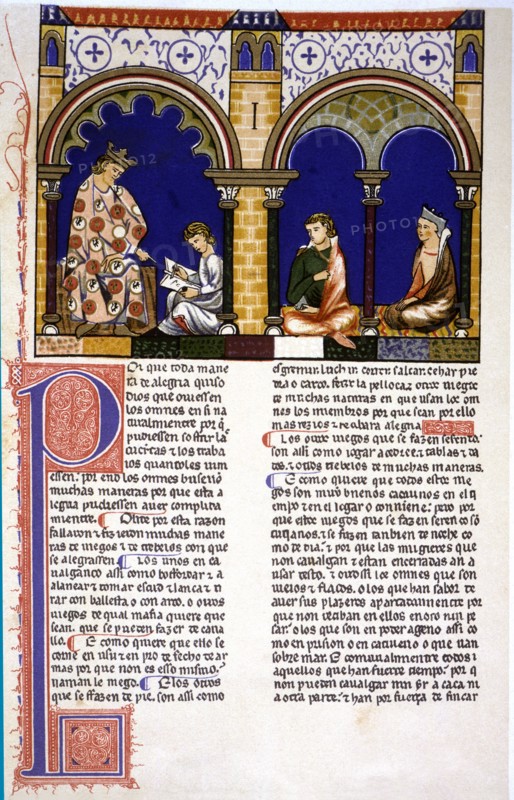 I
Or que toda mane
ra de alegria quiso
dios que ouiessen
los omnes en si na
turalmiente por q̃
pudiessen soffrir las
cueytas & los traba
ios quando les uini
essen. por end los omnes buscaron
muchas maneras por que esta a
legria pudiessen auer complida
miente. Onde por esta razon
fallaron & fizieron muchas mane
ras de iuegos & de trebeios con que
se alegrassen. Los unos en ca
ualgando assi como bofordar & a
alançar & tomar escud & lança & ti
rar con ballesta o con arco. o otros
iuegos de qual manera quiere que
sean. que se pueden fazer de caua
llo. E como quiere que ello se
torne en usu & en pro de fecho de ar
mas por que non es esso mismo.
llaman le iuego. E los otros
que se ffazen de pie. son assi como
esgremir. luchar. correr. saltar. echar pie
dra o dardo. ferir la pellota. & otros iuegos
de muchas naturas en que usan los om
nes los miembros por que sean por ello
mas rezios & reciban alegria
Los otros iuegos que se fazen seyendo.
son assi como iogar açedrex. & tablas & da
dos. & otros trebeios de muchas maneras.
E como quiere que todos estos iue
gos son muy buenos cadaunos en el ti
empo & en el logar o conuiene. pero por
que estos iuegos que se fazen seyendo son
cutianos. & se fazen tan bien de noche co
mo de dia. & por que las mugieres que
non caualgan & estan encerradas an a
usar desto. & otrossi los omnes que son
uieios & flacos. o los que han sabor de
auer sus plazeres apartadamiente por
que non reciban en ellos enoio nin pe
sar. o los que son en poder ageno assi co
mo en prision o en catiuerio o que uan
sobre mar. E comunalmiente todos
aquellos que han fuerte tiempo. por q̃
non pueden caualgar nin yr a caça ni
a otra parte. & han por fuerça de fincar
PHOTO12
PHOTO12
PHOTO12